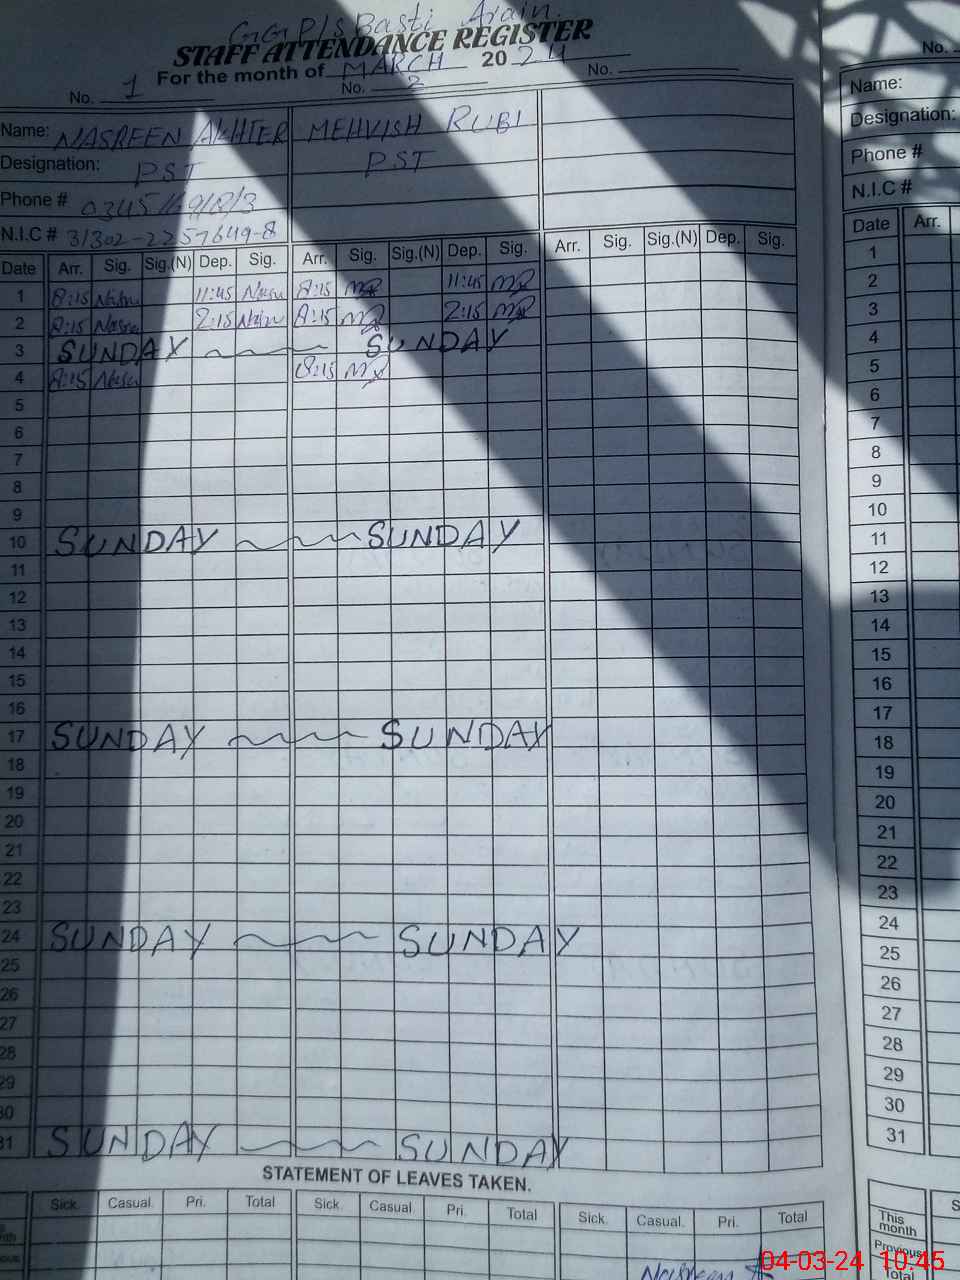 GGP/S Basti Arain.
STAFF ATTENDANCE REGISTER
For the month of MARCH 2024
No. 1 No. 2 No.
Name: NASREEN AKHTER MEHVISH RUBI
Designation: PST PST
Phone #
N.I.C # 31302-2257649-8
Date Arr. Sig. Sig.(N) Dep. Sig. Arr. Sig. Sig.(N) Dep. Sig. Arr. Sig. Sig.(N) Dep. Sig.
1 8:15 11:45 8:15 11:45
2 8:15 2:15 8:15 2:15
3 SUNDAY SUNDAY
4 8:15 8:15
5
6
7
8
9
10 SUNDAY SUNDAY
11
12
13
14
15
16
17 SUNDAY SUNDAY
18
19
20
21
22
23
24 SUNDAY SUNDAY
25
26
27
28
29
30
31 SUNDAY SUNDAY
STATEMENT OF LEAVES TAKEN.
Sick. Casual. Pri. Total Sick. Casual. Pri. Total Sick. Casual. Pri. Total
No.
Name:
Designation:
Phone #
N.I.C #
Date Arr.
1
2
3
4
5
6
7
8
9
10
11
12
13
14
15
16
17
18
19
20
21
22
23
24
25
26
27
28
29
30
31
This month
Previous
Total
04-03-24 10:45